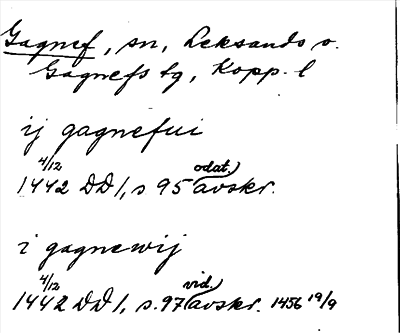 Gagnef, sn, Leksands o.
Gagnefs tg, Kopp. l
ij gagnefui
4/12 odat.)
1442 DD 1, s 95 avskr.
i gagnewij
4/12 vid.)
1442 DD 1, s. 97 avskr. 1456 19/9